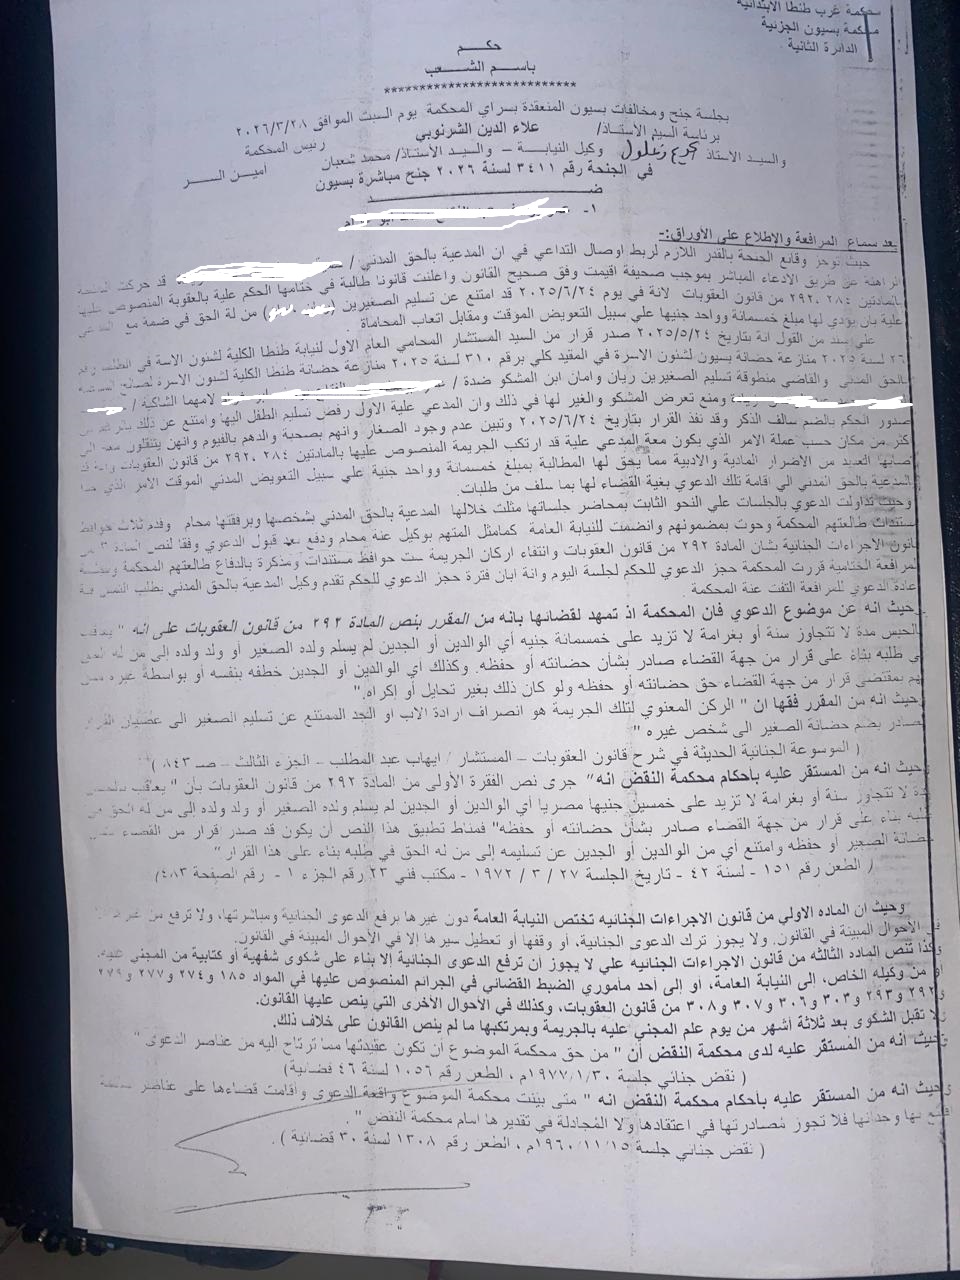 محكمة غرب طنطا الابتدائية
محكمة بسيون الجزئية
الدائرة الثانية
حكم
باسم الشعب
****************************
بجلسة جنح ومخالفات بسيون المنعقدة بسراي المحكمة يوم السبت الموافق ٢٠٢٦/٣/٢٨
برئاسة السيد الاستاذ/ علاء الدين الشرنوبي رئيس المحكمة
والسيد الاستاذ/ كريم زغلول وكيل النيابة – والسيد الاستاذ/ محمد شعبان امين السر
في الجنحة رقم ٣٤١١ لسنة ٢٠٢٦ جنح مباشرة بسيون
ضد
١-
بعد سماع المرافعة والإطلاع على الأوراق:-
حيث توجز وقائع الجنحة بالقدر اللازم لربط اوصال التداعي في ان المدعية بالحق المدني / قد حركت
الراهنة عن طريق الادعاء المباشر بموجب صحيفة اقيمت وفق صحيح القانون واعلنت قانونا طالبة في ختامها الحكم علية بالعقوبة المنصوص عليها
بالمادتين ٢٨٤، ٢٩٢ من قانون العقوبات لانة في يوم ٢٠٢٥/٦/٢٤ قد امتنع عن تسليم الصغيرين ( ) من لة الحق في ضمة مع
علية بان يؤدي لها مبلغ خمسمائة وواحد جنيها علي سبيل التعويض الموقت ومقابل اتعاب المحاماة.
علي سند من القول انة بتاريخ ٢٠٢٥/٥/٢٤ صدر قرار من السيد المستشار المحامي العام الاول لنيابة طنطا الكلية لشئون الاسة في الطلب رقم
٢٦ لسنة ٢٠٢٥ منازعة حضانة بسيون لشئون الاسرة في المقيد كلي برقم ٣١٠ لسنة ٢٠٢٥ منازعة حضانة طنطا الكلية لشئون الاسرة لصالح
بالحق المدني والقاضي منطوقة تسليم الصغيرين ريان وامان ابن المشكو ضدة / لامهما الشاكية /
ومنع تعرض المشكو والغير لها في ذلك وان المدعي علية الاول رفض تسليم الطفل اليها وامتنع عن ذلك
صدور الحكم بالضم سالف الذكر وقد نفذ القرار بتاريخ ٢٠٢٥/٦/٢٤ وتبين عدم وجود الصغار وانهم بصحبة والدهم بالفيوم وانهن يتنقلون معه
كثر من مكان حسب عملة الامر الذي يكون معة المدعي علية قد ارتكب الجريمة المنصوص عليها بالمادتين ٢٨٤، ٢٩٢ من قانون العقوبات
صابها العديد من الاضرار المادية والادبية مما يحق لها المطالبة بمبلغ خمسمائة وواحد جنية علي سبيل التعويض المدني الموقت الامر الذي
المدعية بالحق المدني الي اقامة تلك الدعوي بغية القضاء لها بما سلف من طلبات.
وحيث تداولت الدعوي بالجلسات علي النحو الثابت بمحاضر جلساتها مثلت خلالها المدعية بالحق المدني بشخصها وبرفقتها محام وقدم ثلاث حوافظ
مستندات طالعتهم المحكمة وحوت بمضمونهم وانضمت للنيابة العامة كمامثل المتهم بوكيل عنة محام ودفع بعد قبول الدعوي وفقا لنص المادة ٣ من
قانون الاجراءات الجنائية بشان المادة ٢٩٢ من قانون العقوبات وانتفاء اركان الجريمة ست حوافظ مستندات ومذكرة بالدفاع طالعتهم المحكمة
المرافعة الختامية قررت المحكمة حجز الدعوي للحكم لجلسة اليوم وانة ابان فترة حجز الدعوي للحكم تقدم وكيل المدعية بالحق المدني بطلب التمس فية
اعادة الدعوي للمرافعة التفت عنة المحكمة.
وحيث انه عن موضوع الدعوي فان المحكمة اذ تمهد لقضائها بانه من المقرر بنص المادة ٢٩٢ من قانون العقوبات على انه " يعاقب
بالحبس مدة لا تتجاوز سنة أو بغرامة لا تزيد على خمسمائة جنيه أي الوالدين أو الجدين لم يسلم ولده الصغير أو ولد ولده الى من له الحق
في طلبه بناءً على قرار من جهة القضاء صادر بشأن حضانته أو حفظه. وكذلك أي الوالدين أو الجدين خطفه بنفسه أو بواسطة غيره ممن
لهم بمقتضى قرار من جهة القضاء حق حضانته أو حفظه ولو كان ذلك بغير تحايل أو إكراه."
وحيث انه من المقرر فقها ان " الركن المعنوي لتلك الجريمة هو انصراف ارادة الاب او الجد الممتنع عن تسليم الصغير الى عصيان القرار
الصادر بضم حضانة الصغير الى شخص غيره "
( الموسوعة الجنائية الحديثة في شرح قانون العقوبات – المستشار / ايهاب عبد المطلب – الجزء الثالث – صـ ٨٤٣ )
وحيث انه من المستقر عليه بأحكام محكمة النقض انه " جرى نص الفقرة الأولى من المادة ٢٩٢ من قانون العقوبات بأن " يعاقب بالحبس
مدة لا تتجاوز سنة أو بغرامة لا تزيد على خمسين جنيها مصريا أي الوالدين أو الجدين لم يسلم ولده الصغير أو ولد ولده الى من له الحق في
طلبه بناء على قرار من جهة القضاء صادر بشأن حضانته أو حفظه" فمناط تطبيق هذا النص أن يكون قد صدر اقرار من القضاء
حضانة الصغير أو حفظه وامتنع أي من الوالدين أو الجدين عن تسليمه إلى من له الحق في طلبه بناء على هذا القرار "
( الطعن رقم ١٥١ - لسنة ٤٢ - تاريخ الجلسة ٢٧ / ٣ / ١٩٧٢ - مكتب فني ٢٣ رقم الجزء ١ - رقم الصفحة ٤٨٣)
وحيث ان الماده الاولي من قانون الاجراءات الجنائيه تختص النيابة العامة دون غيرها برفع الدعوى الجنائية ومباشرتها، ولا ترفع من غيرها إلا
في الأحوال المبينة في القانون. ولا يجوز ترك الدعوى الجنائية، أو وقفها أو تعطيل سيرها إلا في الأحوال المبينة في القانون.
وكذا تنص الماده الثالثه من قانون الاجراءات الجنائيه علي لا يجوز أن ترفع الدعوى الجنائية إلا بناء على شكوى شفهية أو كتابية من المجني عليه.
او من وكيله الخاص، إلى النيابة العامة، او إلى أحد مأموري الضبط القضائي في الجرائم المنصوص عليها في المواد ١٨٥ و٢٧٤ و٢٧٧ و٢٧٩
و٢٩٢ و٢٩٣ و٣٠٣ و٣٠٦ و٣٠٧ و٣٠٨ من قانون العقوبات، وكذلك في الأحوال الأخرى التي ينص عليها القانون.
ولا تقبل الشكوى بعد ثلاثة أشهر من يوم علم المجني عليه بالجريمة وبمرتكبها ما لم ينص القانون على خلاف ذلك.
وحيث انه من المستقر عليه لدى محكمة النقض أن " من حق محكمة الموضوع أن تكون عقيدتها مما ترتاح إليه من عناصر الدعوى "
( نقض جنائي جلسة ١٩٧٧/١/٣٠م ، الطعن رقم ١٠٥٦ لسنة ٤٦ قضائية)
وحيث انه من المستقر عليه بأحكام محكمة النقض انه " متى بينت محكمة الموضوع واقعة الدعوى وأقامت قضاءها على عناصر
اقتنع بها وجدانها فلا تجوز مُصادرتها في اعتقادها ولا المُجادلة في تقديرها امام محكمة النقض ".
( نقض جنائي جلسة ١٩٦٠/١١/١٥م ، الطعن رقم ١٣٠٨ لسنة ٣٠ قضائية ).